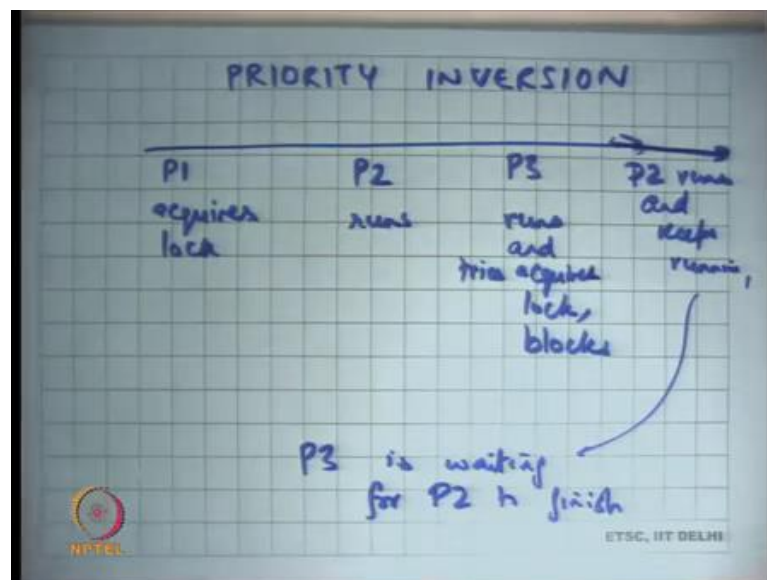 PRIORITY INVERSION
P1
acquires
lock
P2
runs
P3
runs
and
tries acquires
lock,
blocks
P2 runs
and
keeps
P3 is waiting
for P2 to finish
NPTEL
ETSC, IIT DELHI